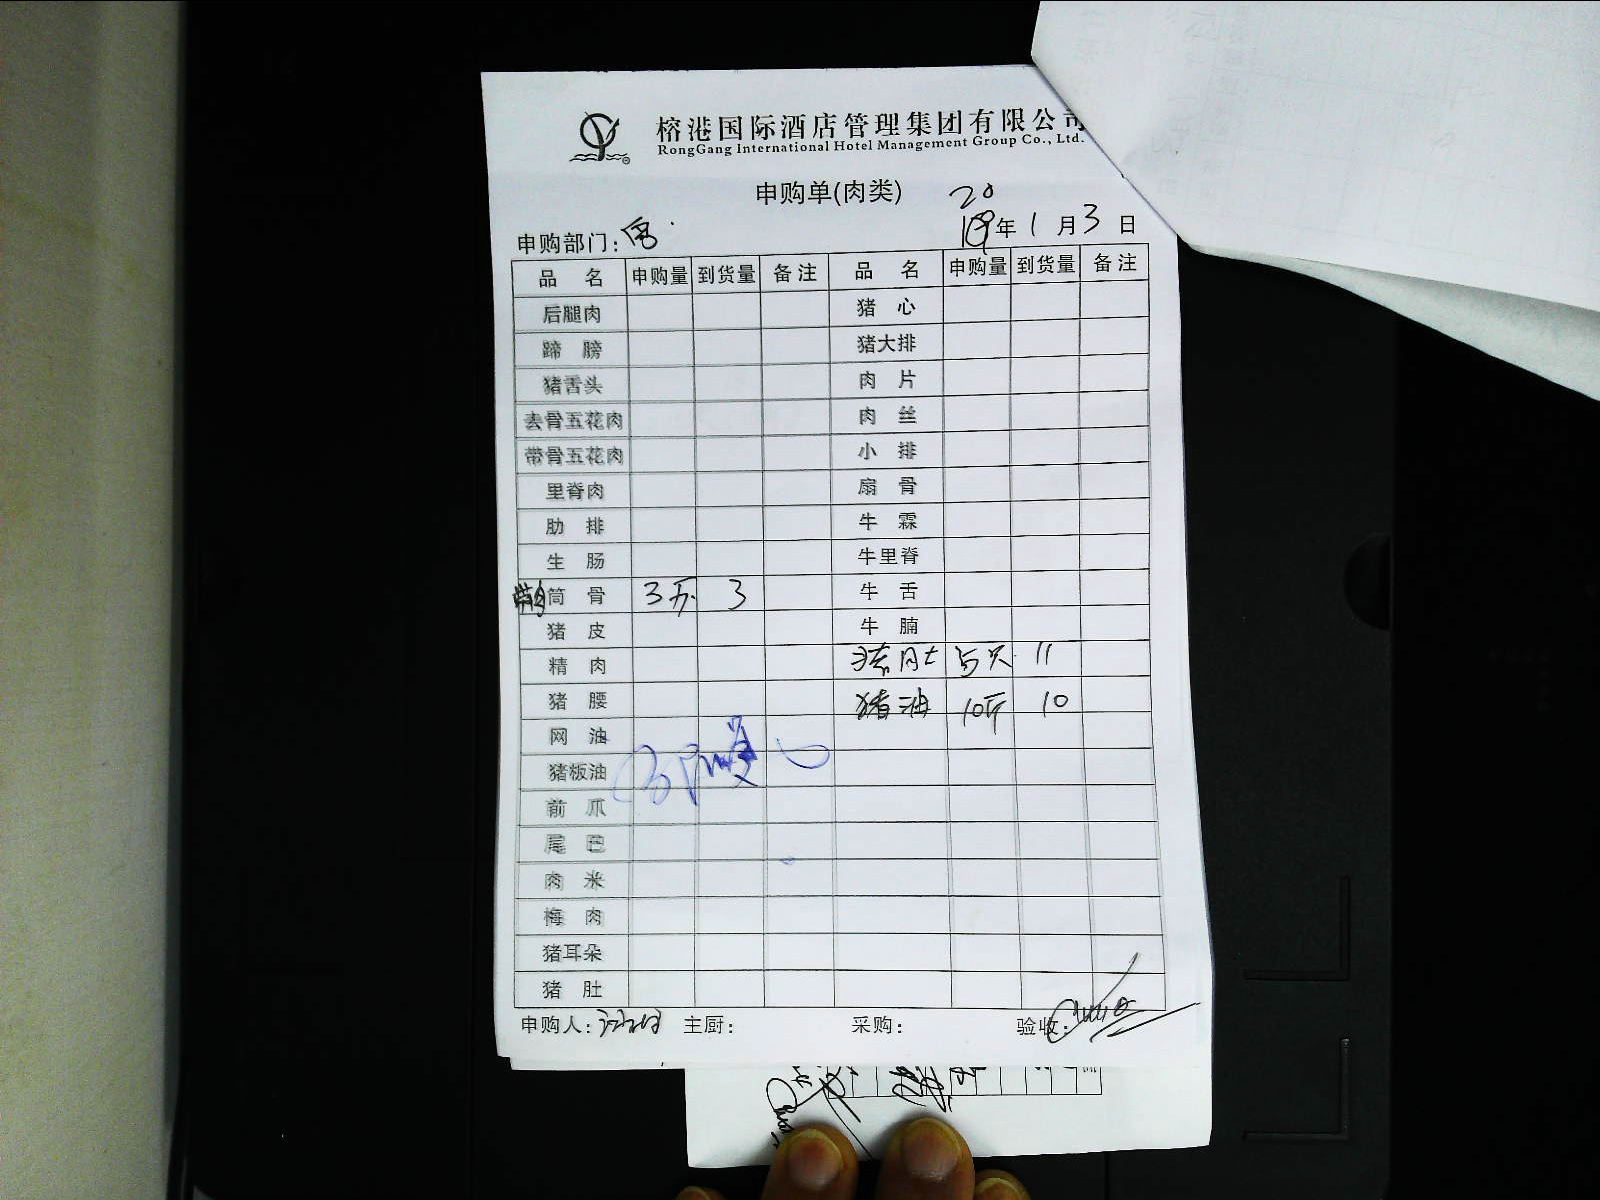 榕港国际酒店管理集团有限公司
RongGang International Hotel Management Group Co., Ltd.
申购单(肉类)
20
申购部门： 19年1月3日
品名 申购量 到货量 备注 品名 申购量 到货量 备注
后腿肉 猪心
蹄膀 猪大排
猪舌头 肉片
去骨五花肉 肉丝
带骨五花肉 小排
里脊肉 扇骨
肋排 牛霖
生肠 牛里脊
筒骨 3斤 3 牛舌
猪皮 牛腩
精肉 猪肚 5只 11
猪腰 猪油 10斤 10
网油
猪板油
前爪
尾巴
肉米
梅肉
猪耳朵
猪肚
申购人： 主厨： 采购： 验收：